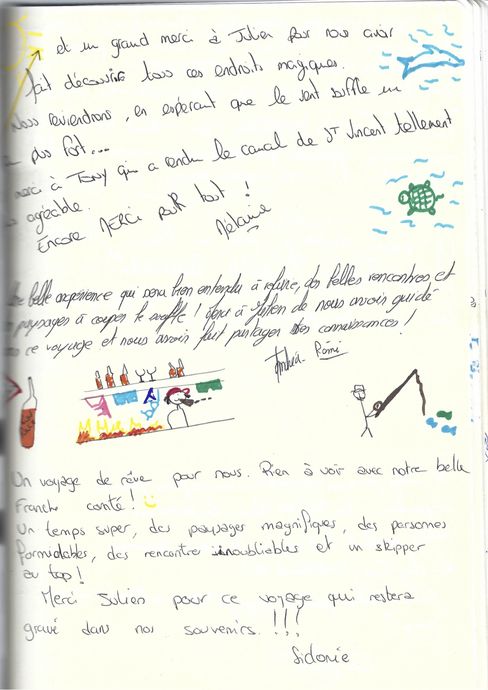 et un grand merci à Julien pour nous avoir
fait découvrir tous ces endroits magiques.
Nous reviendrons, en espérant que le vent souffle un
pas fort...
merci à Tony qui a rendu le canal de St Vincent tellement
agréable.
Encore MERCI POUR tout !
Mélanie
belle expérience qui sera bien entendu à refaire, des belles rencontres et
paysages à couper le souffle ! Merci à Julien de nous avoir guidé
ce voyage et nous avoir fait partager tes connaissances !
Rémi
Un voyage de rêve pour nous. Rien à voir avec notre belle
Franche comté !
Un temps super, des paysages magnifiques, des personnes
formidables, des rencontre inoubliables et un skipper
au top !
Merci Julien pour ce voyage qui restera
gravé dans nos souvenirs. !!!
Sidonie